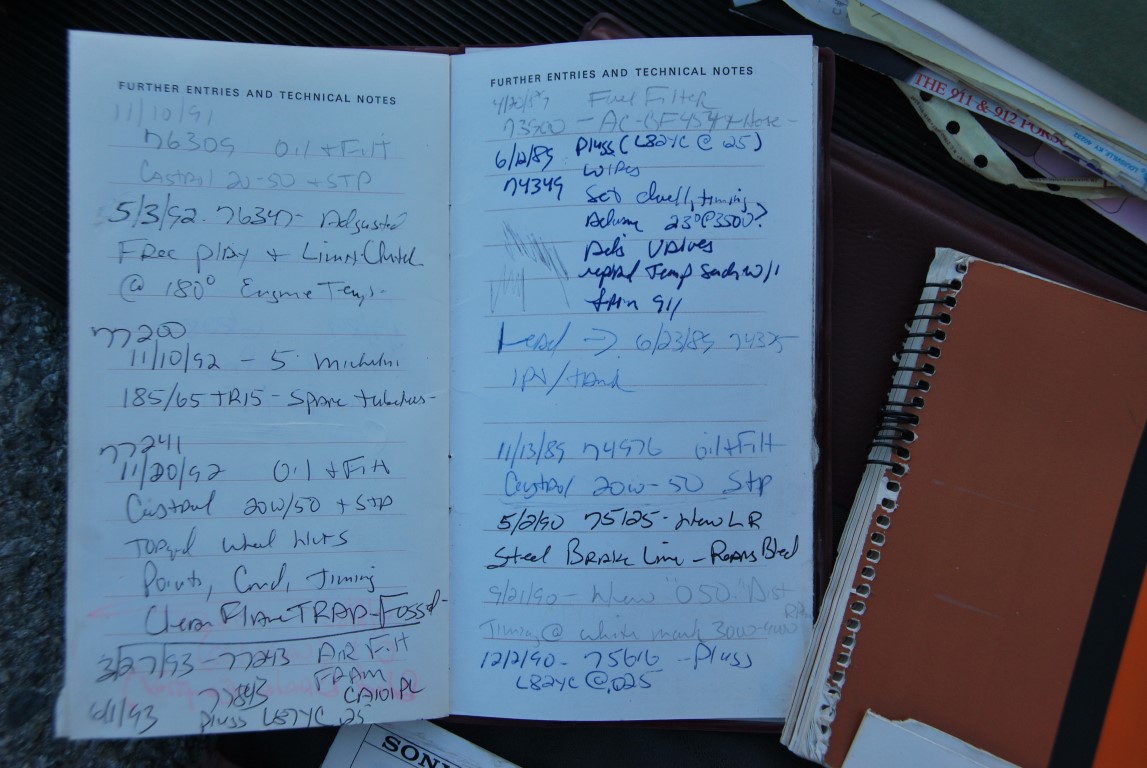 FURTHER ENTRIES AND TECHNICAL NOTES
11/10/91
76309 Oil + Filt
Castrol 20-50 + STP
5/3/92. 76347- Adjusted
Free play + Limit-Clutch
@ 180° Engine Temp-
77200
11/10/92 - 5 Michelin
185/65 TR15 - Spare tubeless-
77241
11/20/92 Oil + Filt
Castrol 20W/50 + STP
TORqed wheel NUTS
Points, Cond, timing
Clean Flame TRAP-
3/27/93 - 77293 AIR Filt
FRAM
CA101PL
77843
6/1/93 pluss L87YC .25
FURTHER ENTRIES AND TECHNICAL NOTES
4/20/89 Fuel Filter
73900 - AC-GF454 + Hose -
6/2/89 pluss (L82YC @ .25)
74349 wires
Set dwell, timing
23°@3500?
Adj Valves
Temp
911
Lead -> 6/23/89 74375
1PT/tank
11/13/89 74976 oil + Filt
Castrol 20W-50 STP
5/2/90 75125 - New LR
Steel Brake Line - Rears Bled
9/21/90 - New "050" Dist
Timing @ white mark 3000-4000
RPM
12/2/90 - 75616 - Pluss
L82YC @.025
THE 911 & 912 PORS
SON